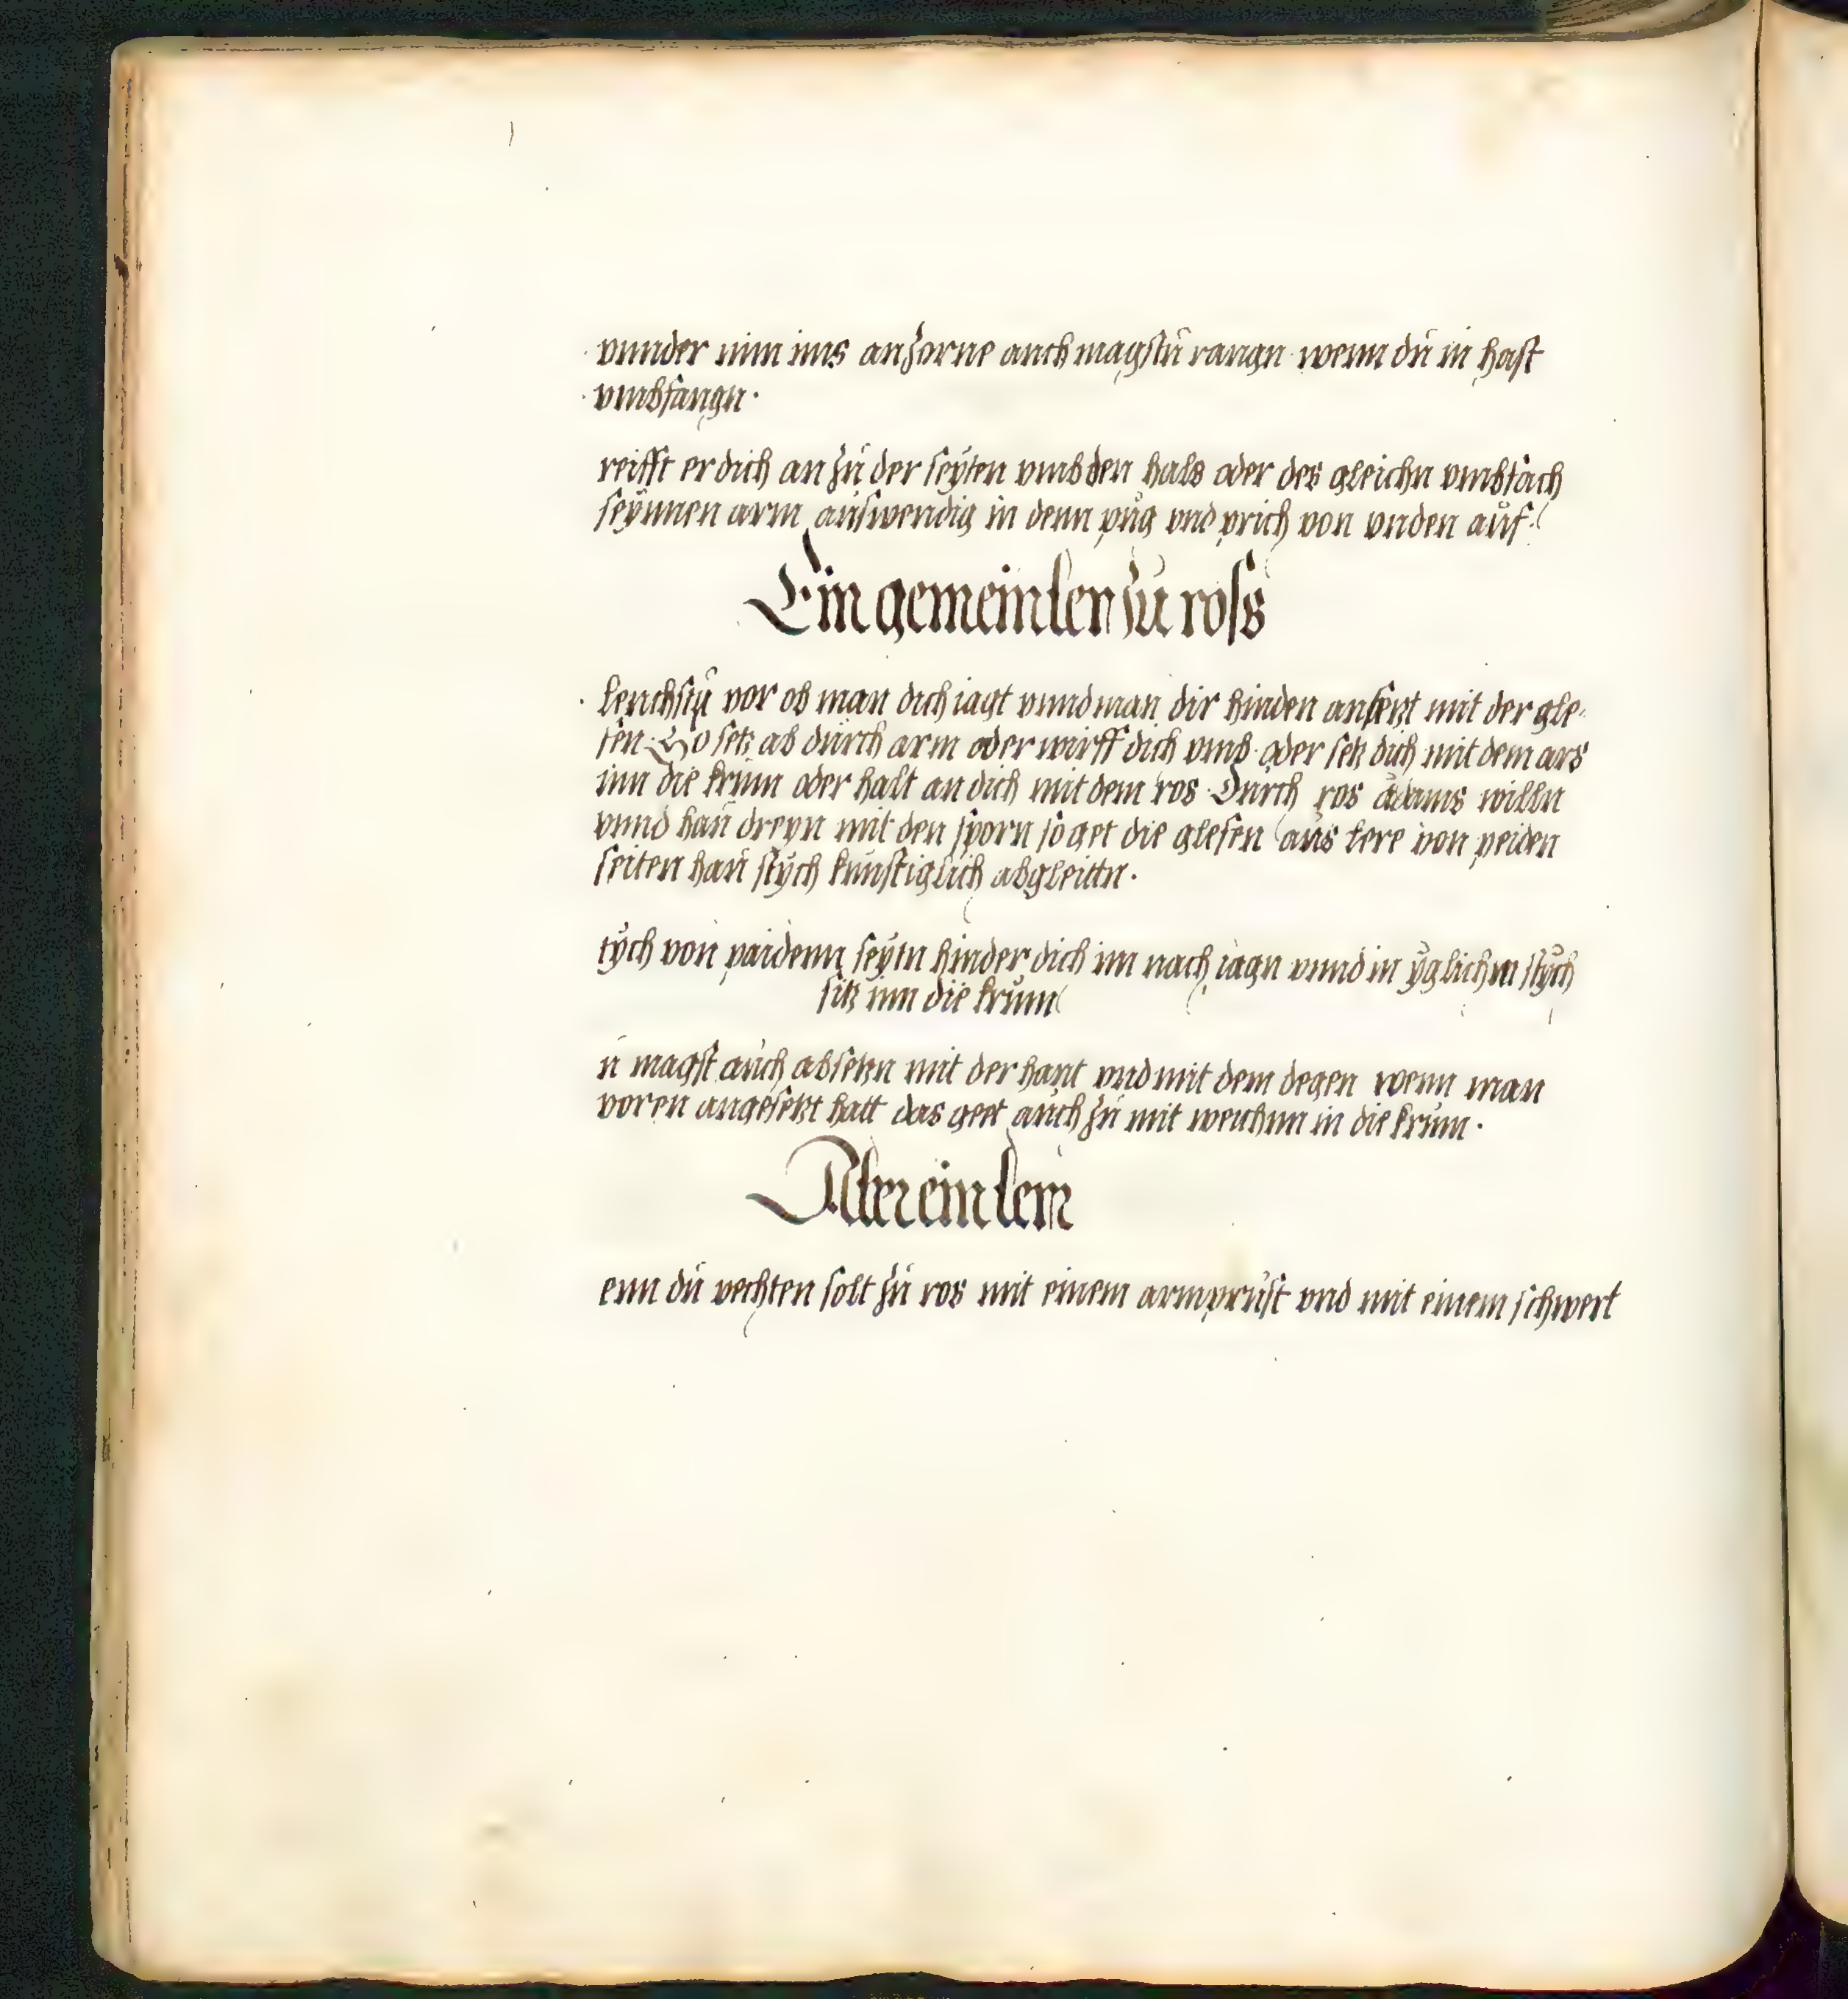 vnnder nim ims an zorne auch magstu rangn wenn du in hast
vmbfangn ·
reifft er dich an zu der seyten vmb den hals oder des gleichn vmbfach
seynnen arm auswendig in denn pug vnd prich von vnden auf
Ein gemein ler zu ross
lenchstu vor ob man dich iagt vnnd man dir hinden ansetzt mit der gle-
fen · So setz ab durch arm oder wirff dich vmb · oder setz dich mit dem ars
inn die krum oder halt an dich mit dem ros · Durch ros adams willn
vnnd hau dreyn mit den sporn so get die glefen aus lere von peiden
seiten hau stych kunstiglich abgleittn ·
tych von paidenn seytn hinder dich im nach iagn vnnd in yglichm stych
sitz inn die krum
u magst auch absetzn mit der hant vnd mit dem degen wenn man
voren angesetzt hatt das geet auch zu mit weichnn in die krum ·
Aber ein lere
enn du vechten solt zu ros mit einem armprust vnd mit einem schwert